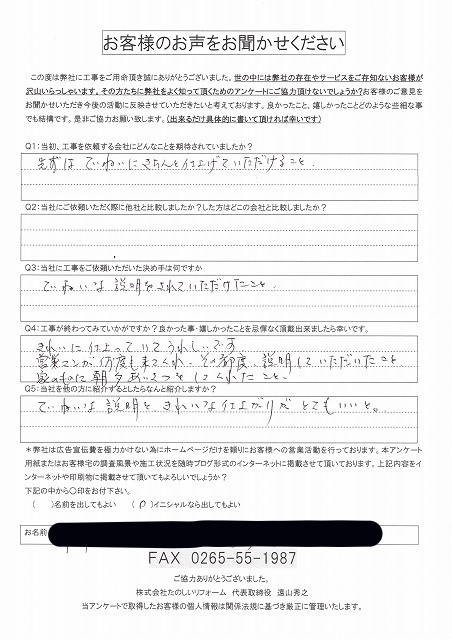 お客様のお声をお聞かせください
この度は弊社に工事をご用命頂き誠にありがとうございました。世の中には弊社の存在やサービスをご存知ないお客様が
沢山いらっしゃいます。その方たちに弊社をよく知って頂くためのアンケートにご協力頂けないでしょうか?お客様のご意見を
お聞かせいただき今後の活動に反映させていただきたいと考えております。良かったこと、嬉しかったことどのような些細な事
でも結構です。是非ご協力お願い致します。(出来るだけ具体的に書いて頂ければ幸いです)
Q1:当初、工事を依頼する会社にどんなことを期待されていましたか?
先ずは ていねいにきちんと仕上げていただけること.
Q2:当社にご依頼いただく際に他社と比較しましたか?した方はどこの会社と比較しましたか?
Q3:当社に工事をご依頼いただいた決め手は何ですか
ていねいな説明をされていただけたこと.
Q4:工事が終わってみていかがですか?良かった事・嬉しかったことを忌憚なく頂戴出来ましたら幸いです。
きれいに仕上っていてうれしいです
営業マンが何度も来てくれ、その都度、説明していただいたこと
家のものに朝夕あいさつをしてくれたこと.
Q5:当社を他の方に紹介するとしたらなんと紹介しますか?
ていねいな説明ときれいな仕上がりがとてもいいと。
*弊社は広告宣伝費を極力かけない為にホームページだけを頼りにお客様への営業活動を行っております。本アンケート
用紙またはお客様宅の調査風景や施工状況を随時ブログ形式のインターネットに掲載させて頂いております。上記内容をイ
ンターネットや印刷物に掲載させて頂いてもよろしいでしょうか?
下記の中から〇印をお付下さい。
( )名前を出してもよい (○)イニシャルなら出してもよい
お名前
FAX 0265-55-1987
ご協力ありがとうございました。
株式会社たのしいリフォーム 代表取締役 遠山秀之
当アンケートで取得したお客様の個人情報は関係法規に基づき厳正に管理いたします。